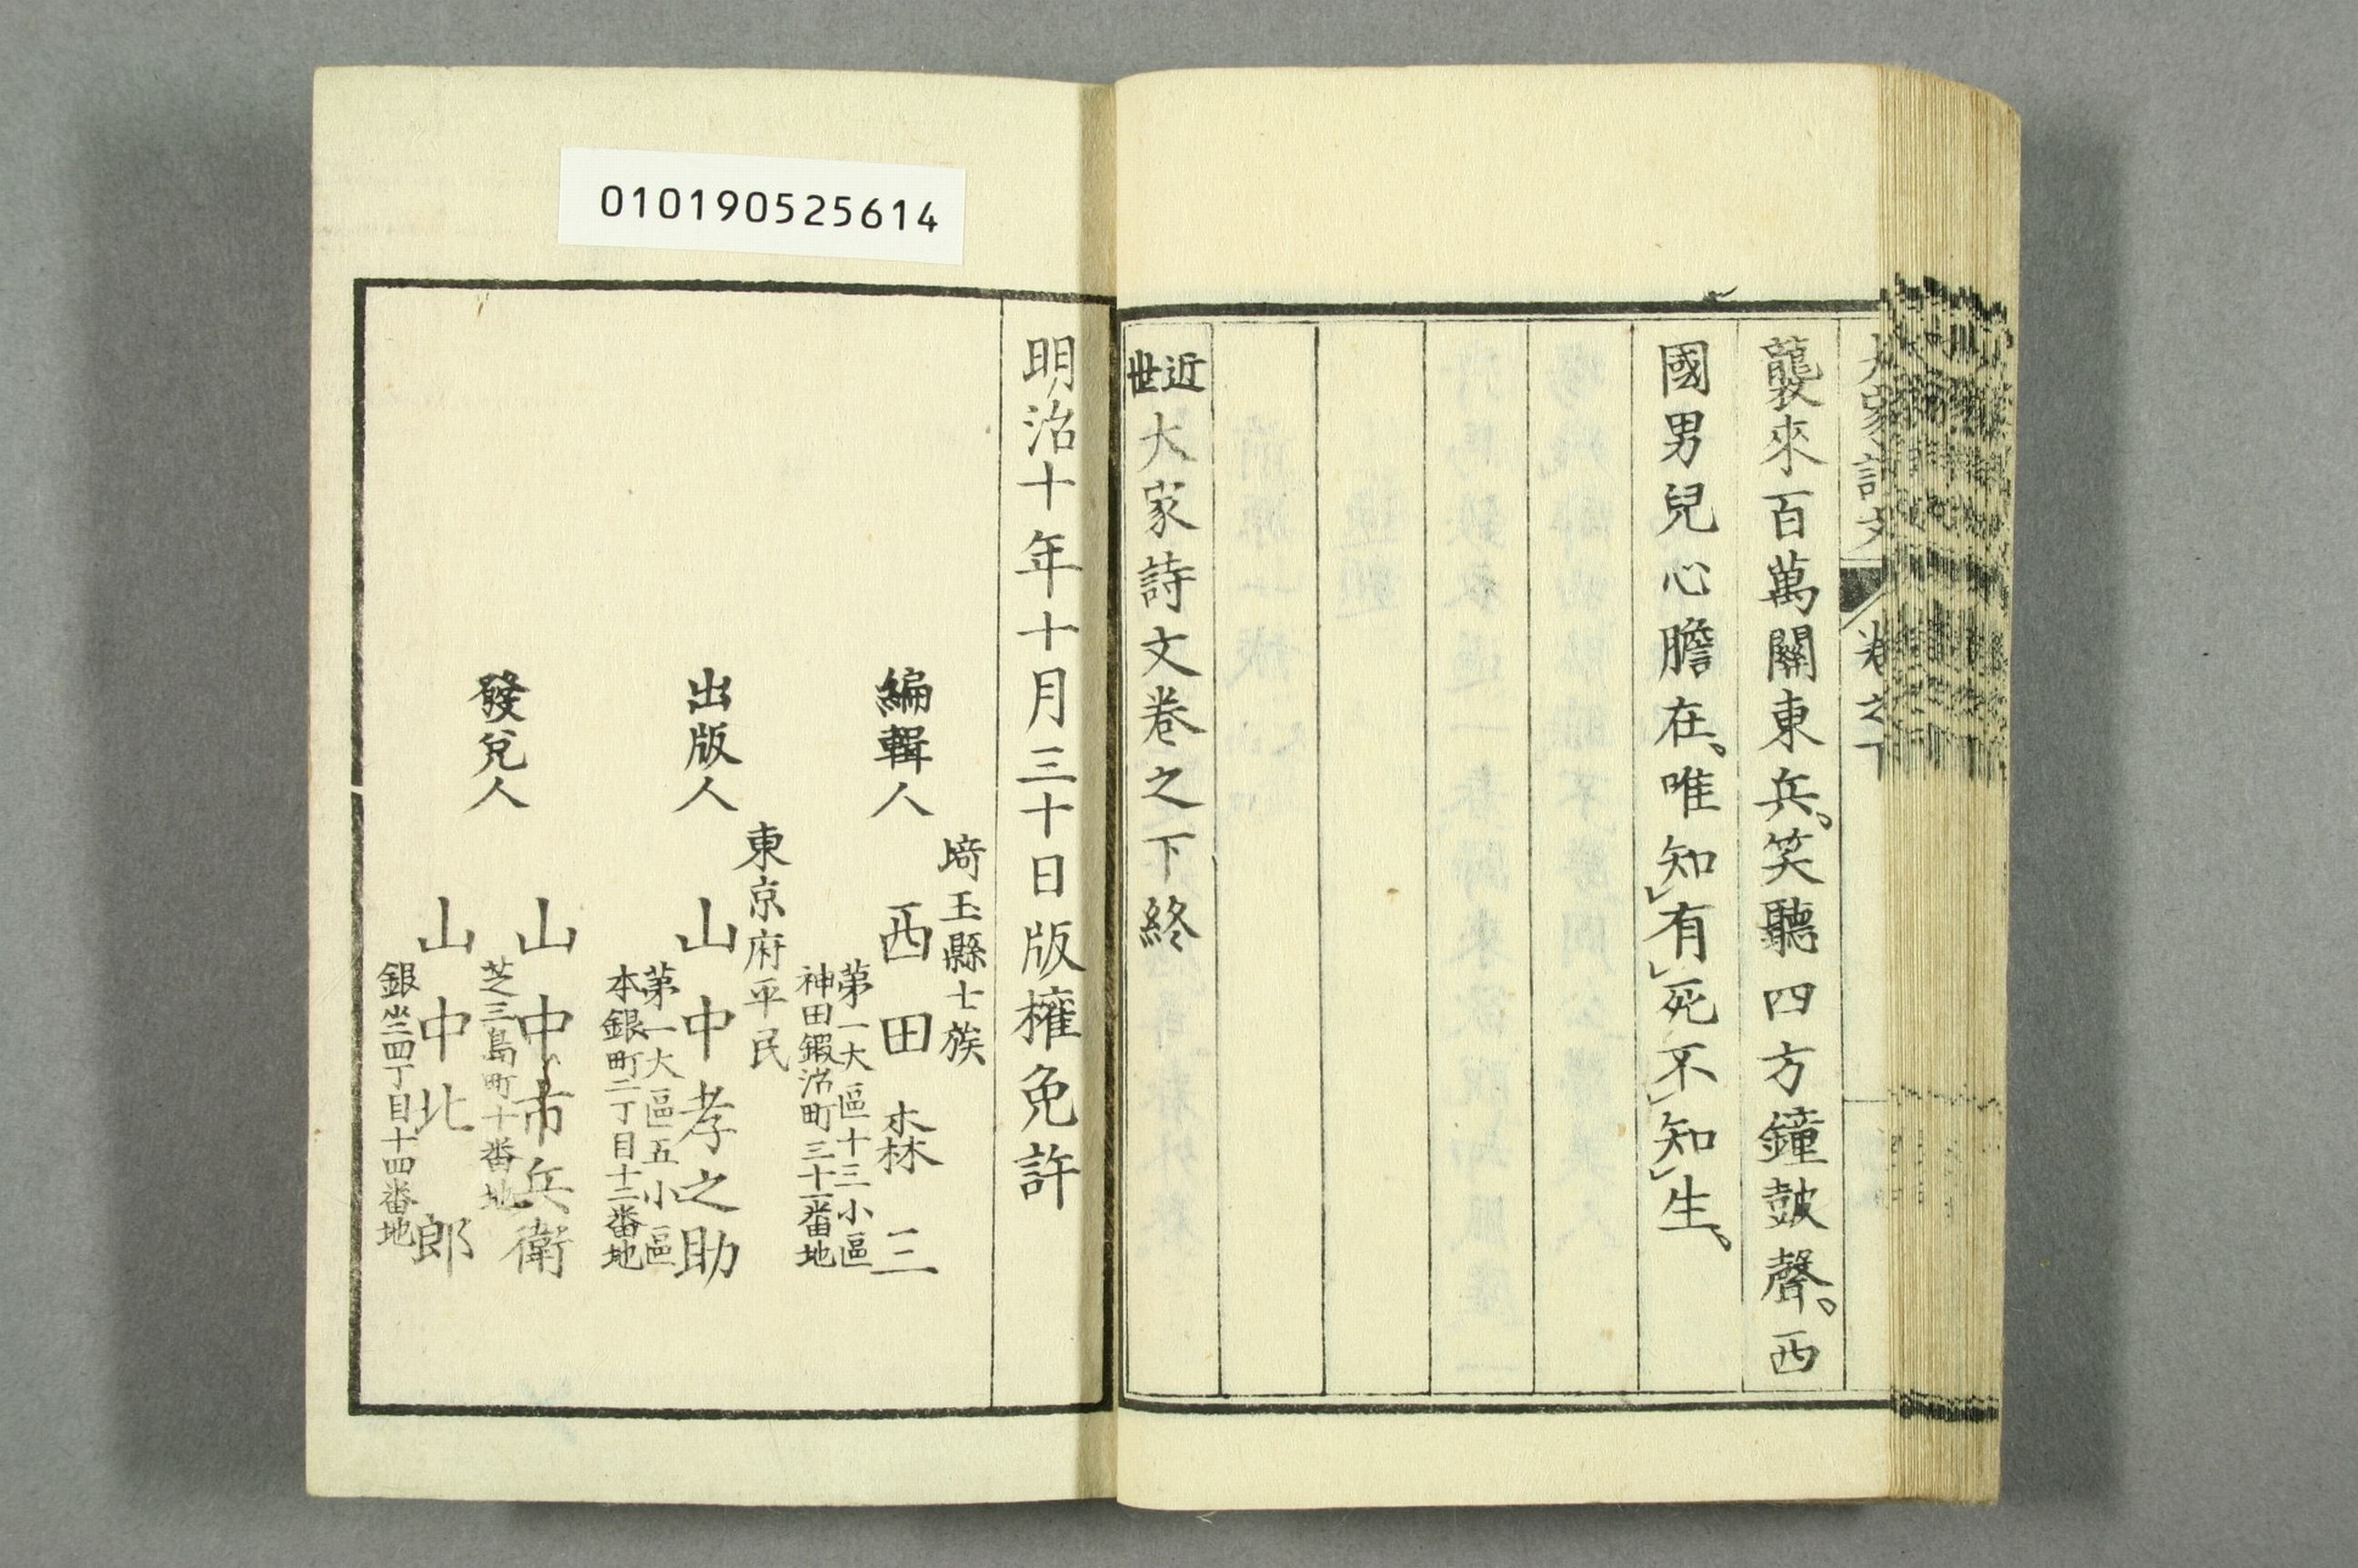 010190525614
大家詩文 卷之下
襲來百萬關東兵、笑聽四方鐘皷聲。西
國男兒心膽在、唯知有死不知生。
近世大家詩文卷之下終
明治十年十月三十日版權免許
埼玉縣士族
編輯人 西田森三
第一大區十三小區
神田鍜冶町三十一番地
東京府平民
出版人 山中孝之助
第一大區五小區
本銀町二丁目十二番地
發兌人 山中市兵衛
芝三島町十番地
山中北郎
銀坐四丁目十四番地